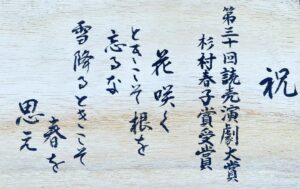 祝
第三十回読売演劇大賞
杉村春子賞受賞
花咲く
ときこそ根を
忘るな
雪降るときこそ
春を
思え